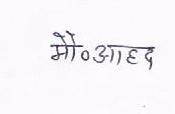 मौ०आहद